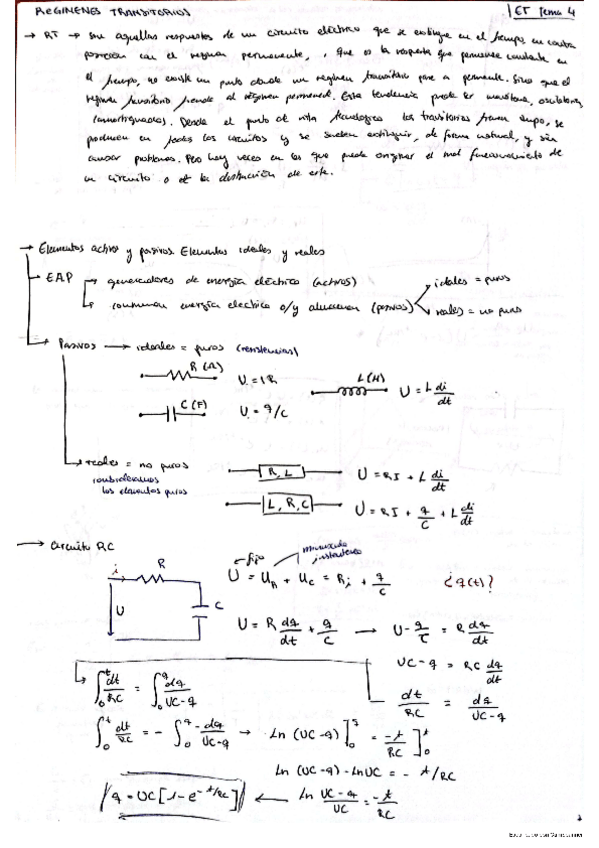 REGIMENES TRANSITORIOS
ET Tema 4
→ RT → son aquellas respuestas de un circuito eléctrico que se extingue en el tiempo, en contra
posición con el regimen permanente, que es la respuesta que permanece constante en
el tiempo, no existe un punto donde un regimen transitorio pase a permanente. Sino que el
regimen transitorio tiende al régimen permanente. Esta tendencia puede ser monotona, oscilatoria,
(amortiguadas). Desde el punto de vista tecnologico los transitorios tienen, se
producen en todos los circuitos y se suelen extinguir, de forma natural, y sin
causar problemas. Pero hay veces en las que puede originar el mal funcionamiento de
un circuito o la destrucción de este.
→ Elementos activos y pasivos. Elementos ideales y reales
→ EAP
generadores de energía eléctrica (activos)
consumen energía electrica o/y almacenan (pasivos)
ideales = puros
reales = no puros
→ Pasivos → ideales = puros (resistencias)
R (Ω) U = IR
L (H) U = L di/dt
C (F) U = q/C
→ reales = no puros
los elementos puros
R, L U = RI + L di/dt
L, R, C U = RI + q/C + L di/dt
→ Circuito RC
i R U C
fijo
U = U_R + U_C = Ri + q/C ¿q(t)?
U = R dq/dt + q/C → U - q/C = R dq/dt
UC - q = RC dq/dt
dt/RC = dq/UC-q
∫₀ᵗ dt/RC = ∫₀^q dq/UC-q
∫₀ᵗ dt/RC = - ∫₀^q -dq/UC-q → Ln (UC-q)]₀^q = -t/RC]₀ᵗ
Ln (UC-q) - Ln UC = - t/RC
q = UC[1-e^-t/RC] ← Ln UC-q/UC = -t/RC